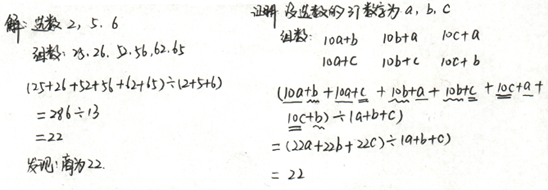 解:选数2, 5, 6
组数: 25, 26, 52, 56, 62, 65
(25+26+52+56+62+65)÷(2+5+6)
=286÷13
=22
发现:商为22.
证明 设选数的3个数字为a, b, c
组数: 10a+b 10b+a 10c+a
10a+c 10b+c 10c+b
(10a+b+10a+c+10b+a+10b+c+10c+a+
10c+b)÷(a+b+c)
=(22a+22b+22c)÷(a+b+c)
=22